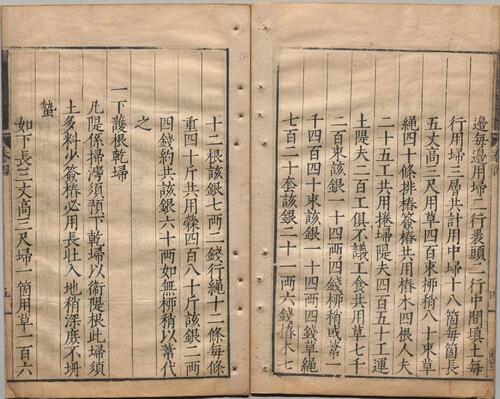 邉每邉用埽二行裹頭二行中間填土每
行用埽三層共計用中埽十八箇每箇長
五丈高三尺用草四百束柳稍八十束草
繩四十條排椿簽椿共用椿木四根人夫
二十五工共用捲埽隄夫四百五十工運
土隄夫二百工俱不議工食共用草七千
二百束該銀一十四兩四錢柳稍或葦一
千四百四十束該銀一十四兩四錢草繩
七百二十套該銀二十一兩六錢椿木七
十二根該銀七兩二錢行繩十二條每條
重四十斤共用檾四百八十斤該銀二兩
四錢約共該銀六十兩如無柳稍以葦代
之
一下護根乾埽
凡隄係掃灣須預下乾埽以衛隄根此埽須
土多料少簽椿必用長壯入地稍深庶不坍
蟄
如下長三丈高三尺埽一箇用草一百六
卷四